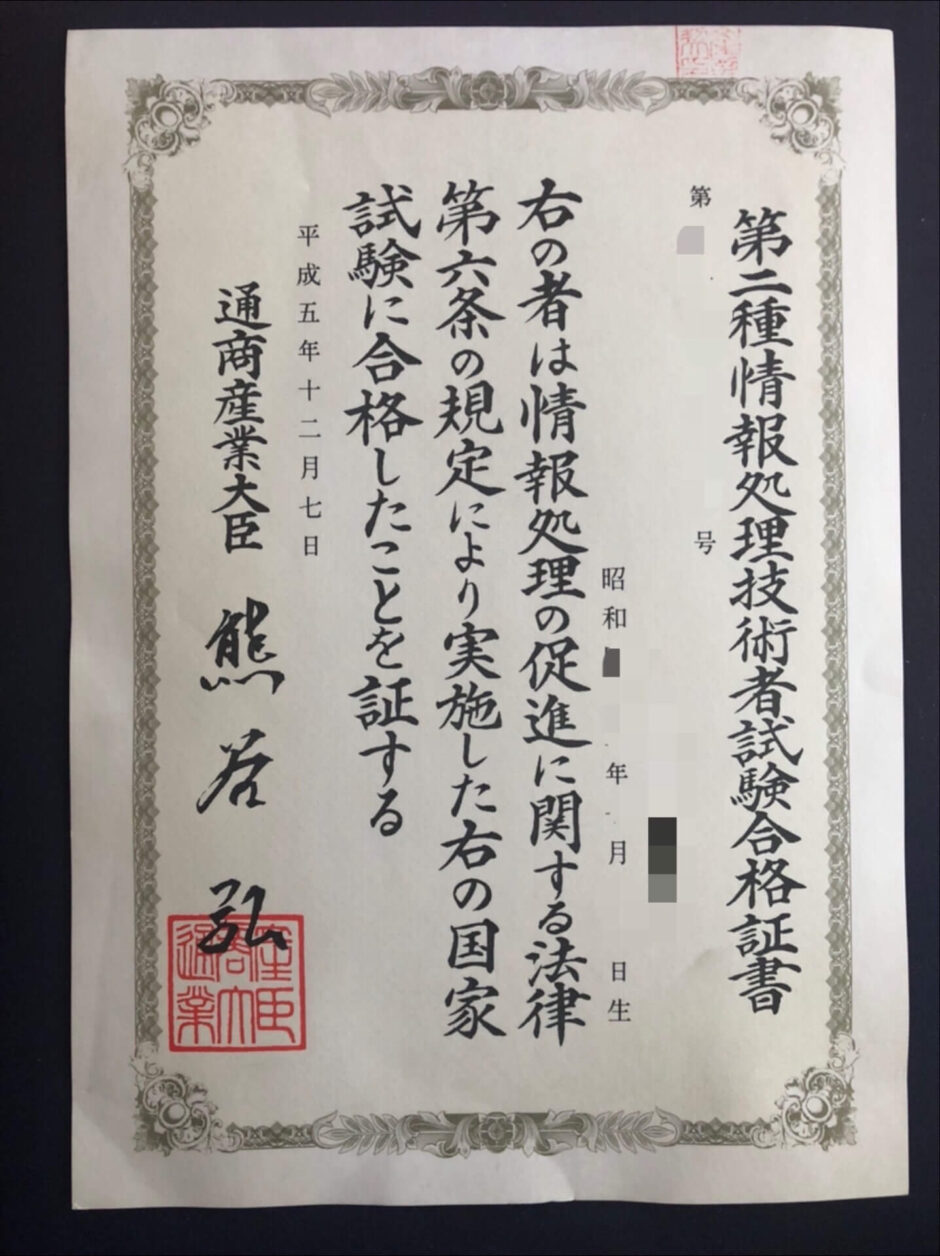 第二種情報処理技術者試験合格証書
第 号
昭和 年 月 日生
右の者は情報処理の促進に関する法律
第六条の規定により実施した右の国家
試験に合格したことを証する
平成五年十二月七日
通商産業大臣 熊谷弘
通商産業大臣